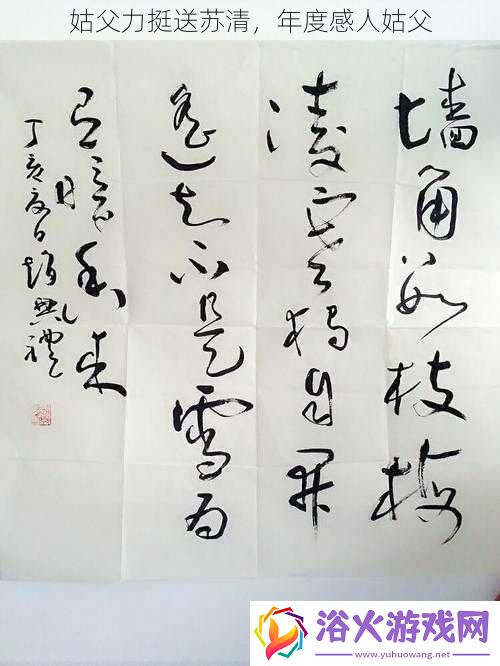 姑父力挺送苏清，年度感人姑父
墙角数枝梅
凌寒独自开
遥知不是雪
为有暗香来
丁亥夏日赵兴礼
浴火游戏网
www.yuhuowang.net